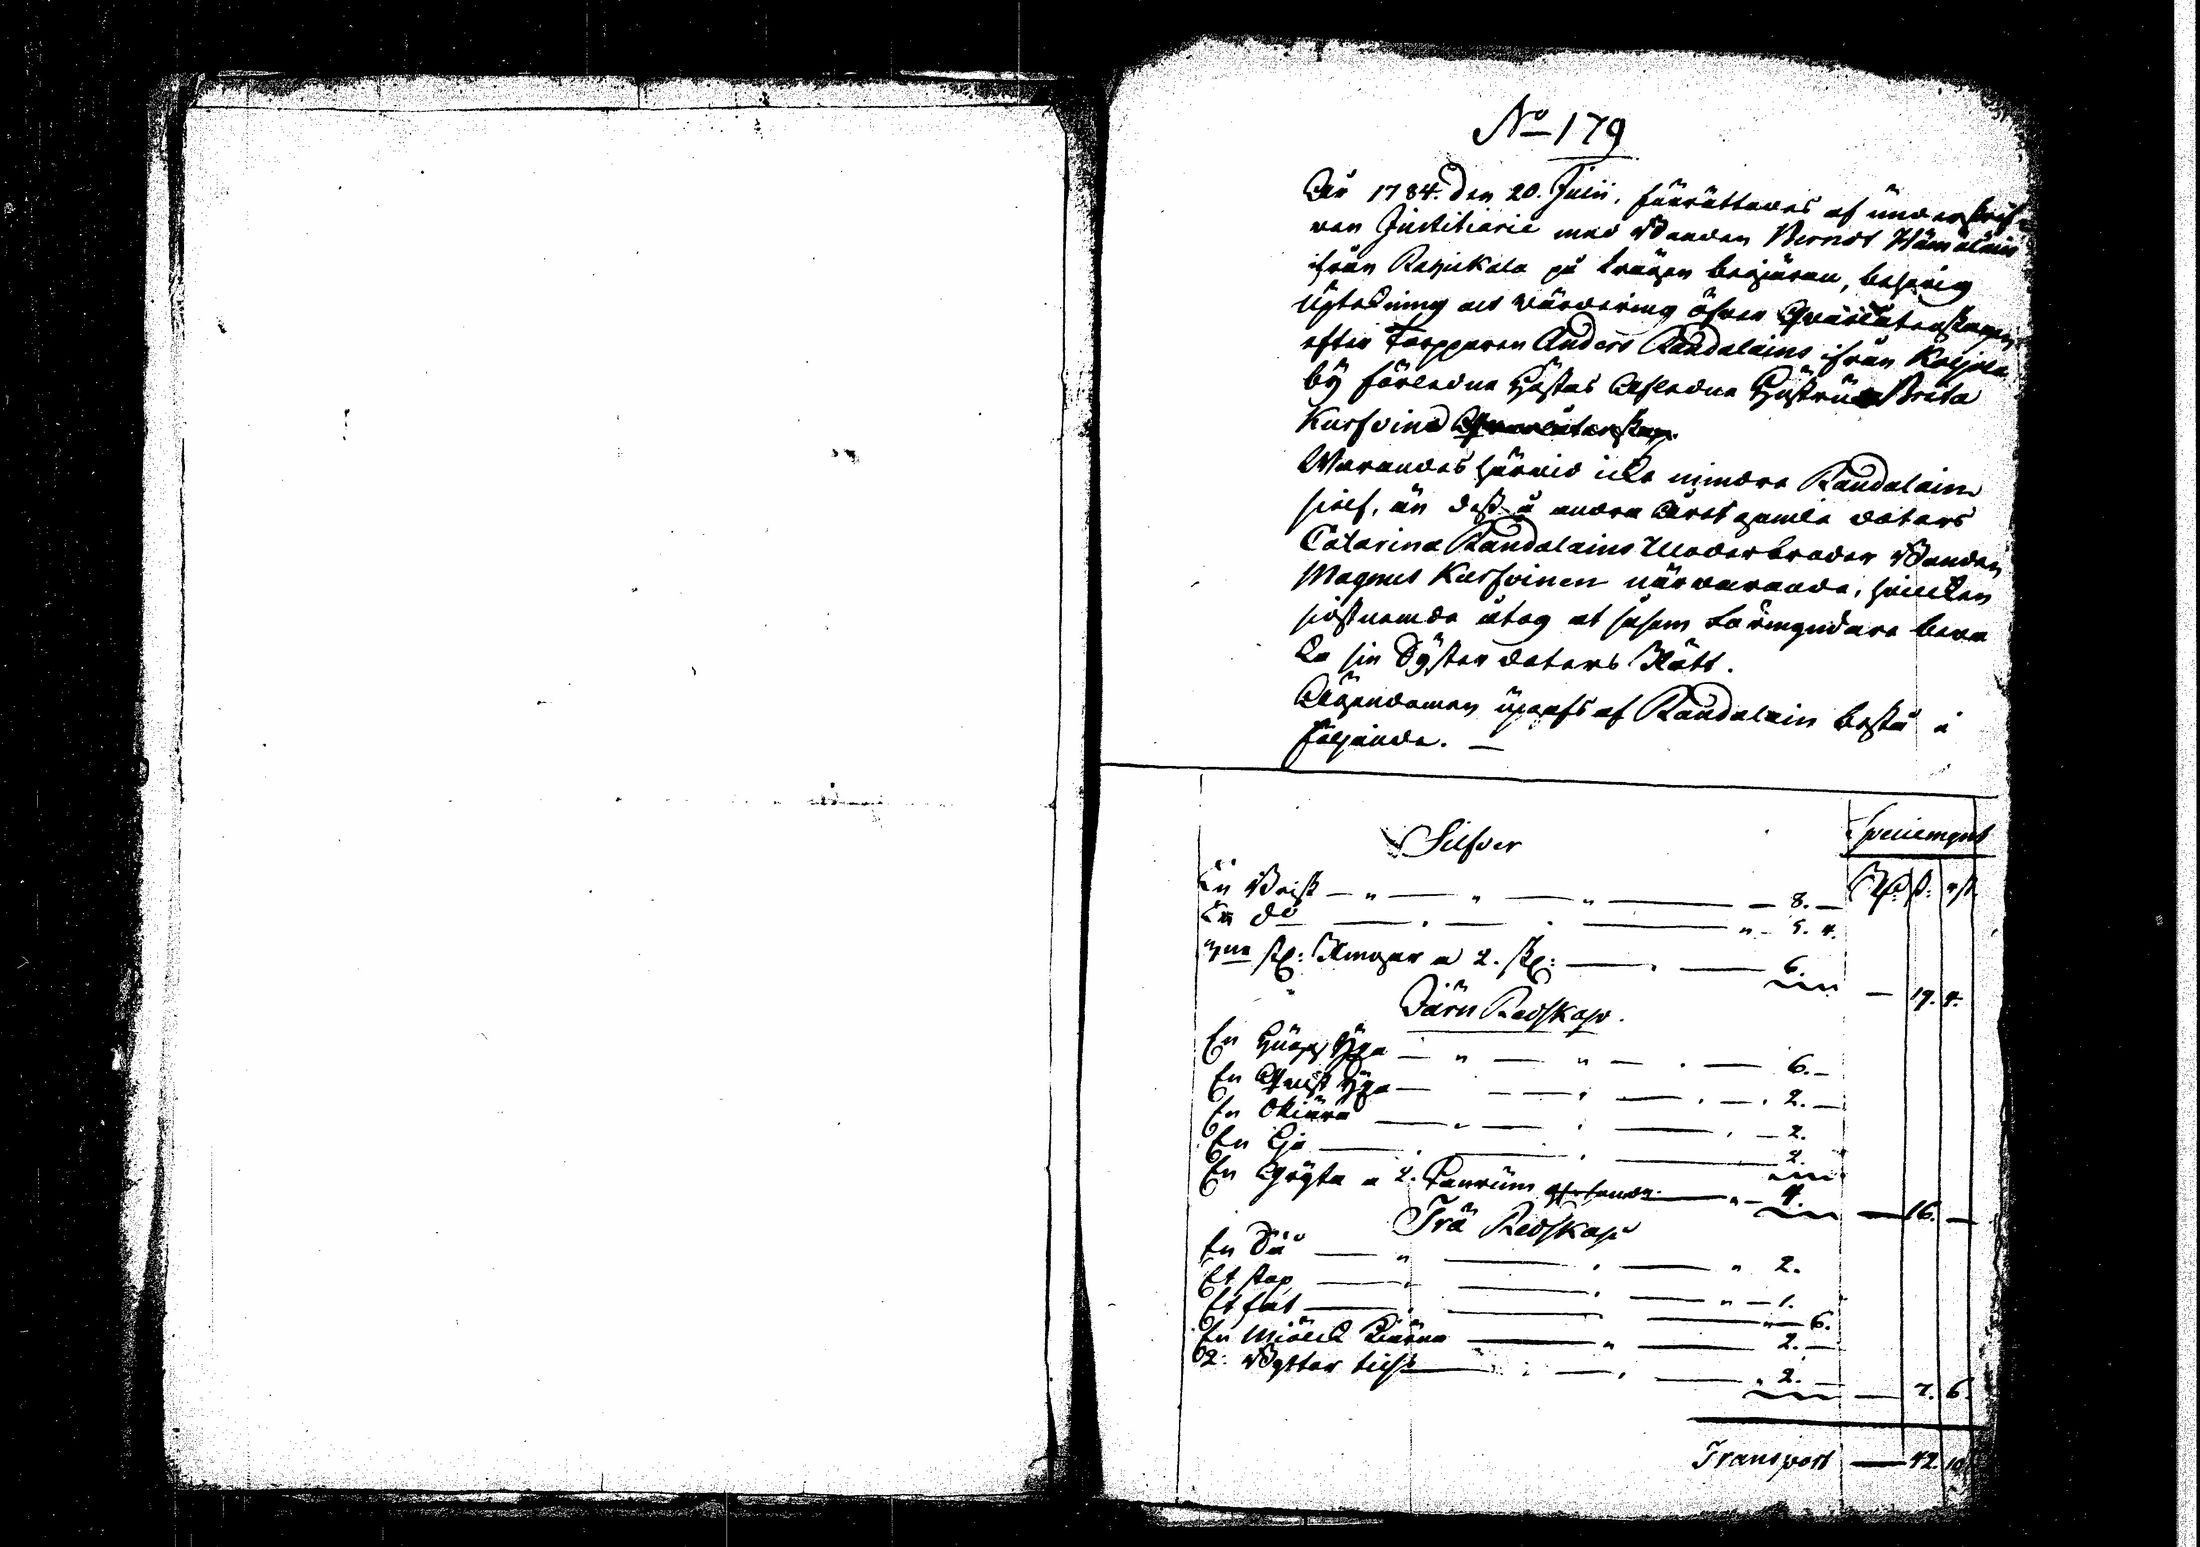 No 179
År 1784. den 20. Julii, förrättades af underskrif-
ven Justitiarie med Bonden Berndt Hämäläin
ifrån Rapukala på trägen begjäran, behörig
Upteckning och värdering öfver Qvarlåtenskapen
efter Torpparen Anders Raudalains ifrån Koljola
by förledne Höstas Afledne Hustru Brita
Kurfvine Qvarlåtenskap.
Warandes härvid icke mindre Raudalain
sielf, än dess å andra året gamla dotters
Catarina Raudalains Moderbroder Bonden
Magnus Kurfvinen närvarande, hvilcken
sidstnemde åtog at såsom Förmyndare beva
ka sin Syster dotters Rätt.
Ägendomen upgafs af Raudalain bestå i
följande. —
Silfver
Speciemynt
Rd. ß. rst
En Brisk — 8. —
En do — 5. 4.
3ne st: Ringar a 2. st: — 6.
— 19. 4.
Järn Redskap.
En Hugg Yxa — 6. —
En Qvist Yxa — 2. —
En Skiära — 2.
En Lja — 2.
En Gryta a 2. Kannrum — 4.
— 16. —
Trä Redskap
En Så — 2.
Et stop — 1.
Et fat — 6.
En Miölck Kiärna — 2. —
2: Byttor tilsk — 2. —
— 7. 6.
Transport — 42. 10.